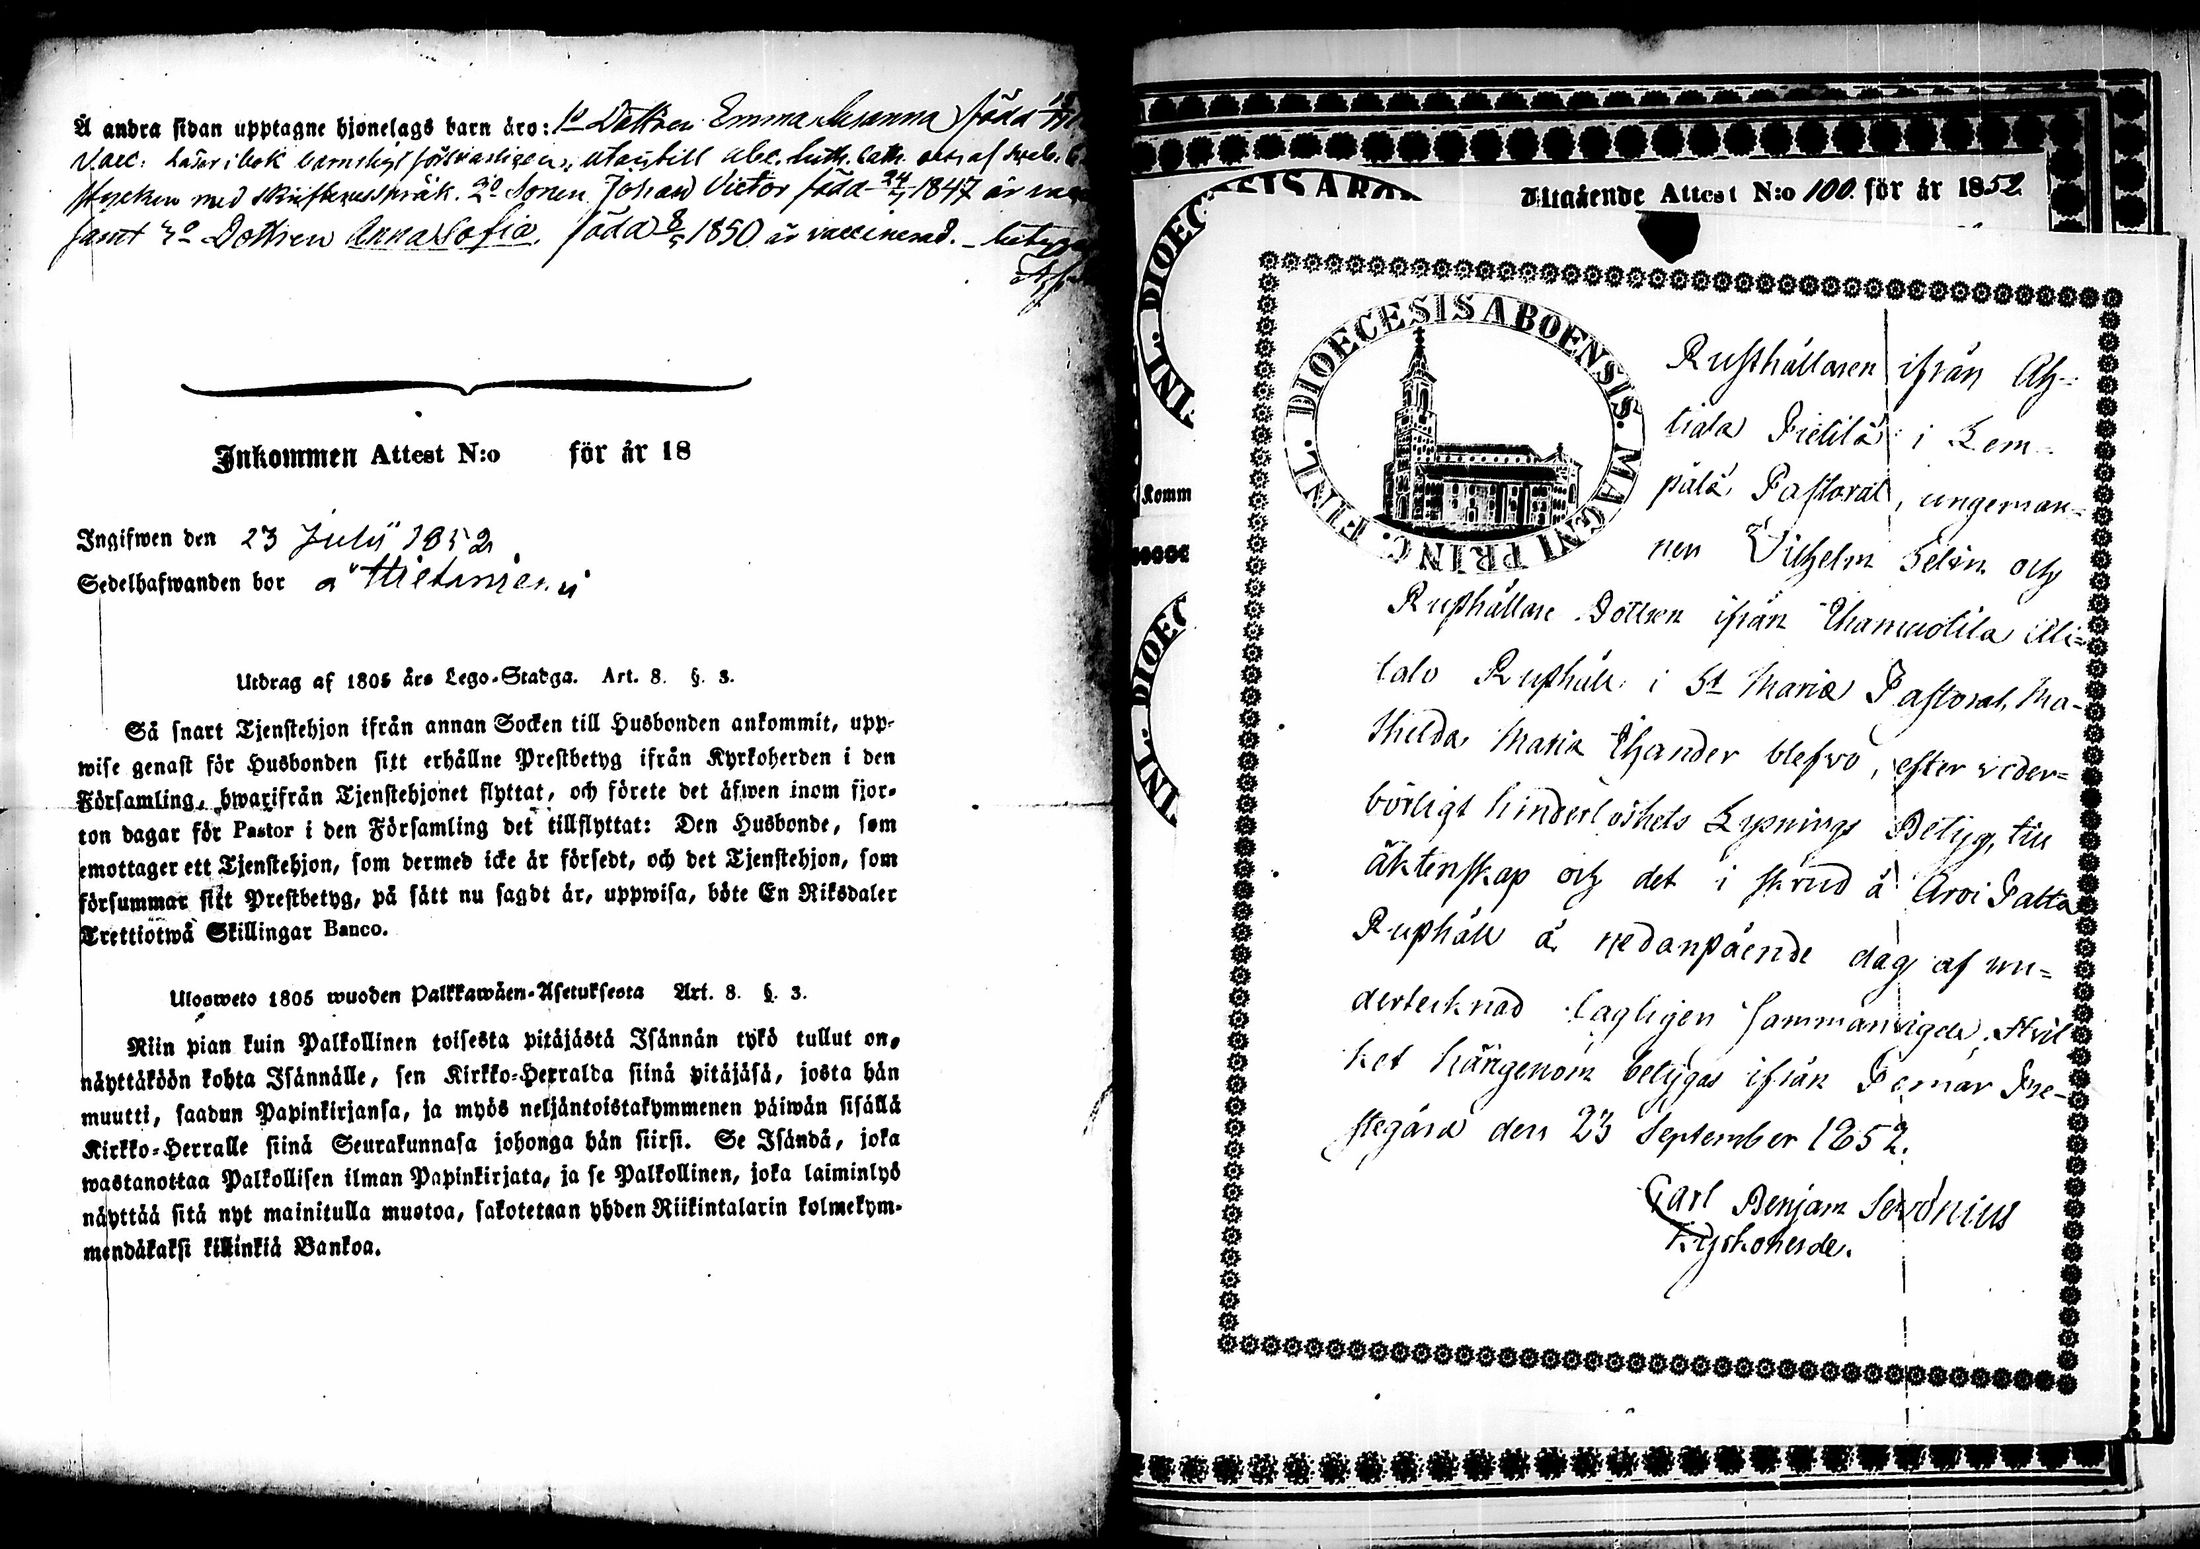 Å andra sidan upptagne hjonelags barn äro: 1o Dottren Emma Susanna född
Vacc: läser i bok barnsligt försvarligen, utantill abc. luth. Cath.
stycken med skriftenes språk. 2o Sonen Johan Victor född 24/4 1847 är
samt 3o Dottren Anna Sofia. född 8/5 1850 är vaccinerad. _
Inkommen Attest N:o för år 18
Ingifwen den 23 Julii 1852
Sedelhafwanden bor å Hietaniemi
Utdrag af 1805 års Lego-Stadga. Art. 8. §. 3.
Så snart Tjenstehjon ifrån annan Socken till Husbonden ankommit, upp-
wise genast för Husbonden sitt erhållne Prestbetyg ifrån Kyrkoherden i den
Församling, hwarifrån Tjenstehjonet flyttat, och förete det äfwen inom fjor-
ton dagar för Pastor i den Församling det tillflyttat: Den Husbonde, som
emottager ett Tjenstehjon, som dermed icke är försedt, och det Tjenstehjon, som
försummar sitt Prestbetyg, på sätt nu sagdt är, uppwisa, böte En Riksdaler
Trettiotwå Skillingar Banco.
Ulosweto 1805 wuoden Palkkawäen-Asetuksesta Art. 8. §. 3.
Niin pian kuin Palkollinen toisesta pitäjästä Isännän tykö tullut on,
näyttäköön kohta Isännälle, sen Kirkko-Herralda siinä pitäjäsä, josta hän
muutti, saadun Papinkirjansa, ja myös neljäntoistakymmenen päiwän sisällä
Kirkko-Herralle siinä Seurakunnasa johonga hän siirsi. Se Isändä, joka
wastanottaa Palkollisen ilman Papinkirjata, ja se Palkollinen, joka laiminlyö
näyttää sitä nyt mainitulla muotoa, sakotetaan yhden Riikintalarin kolmekym-
mendäkaksi killinkiä Bankoa.
Utgående Attest N:o 100. för år 1852
DIOECESIS ABOENSIS. MAGNI PRINC. FINL.
Komm
Rusthållaren ifrån Ah-
tiala Pietilä i Lem-
pälä Pastorat, ungeman-
nen Vilhelm Selin och
Rusthållare Dottren ifrån
talo Rusthåll i St Mariæ Pastorat, Ma-
thilda Maria Thander blefvo, efter veder-
börligt hinderlöshets Lysnings Betyg, till
äktenskap och det i skrud å Arvi Patta
Rusthåll å nedanstående dag af un-
dertecknad lagligen sammanvigde, Hvil
ket härigenom betygas ifrån Pemar Pre-
stegård den 23 September 1852.
Carl Benjam Servónius
Kyrkoherde.